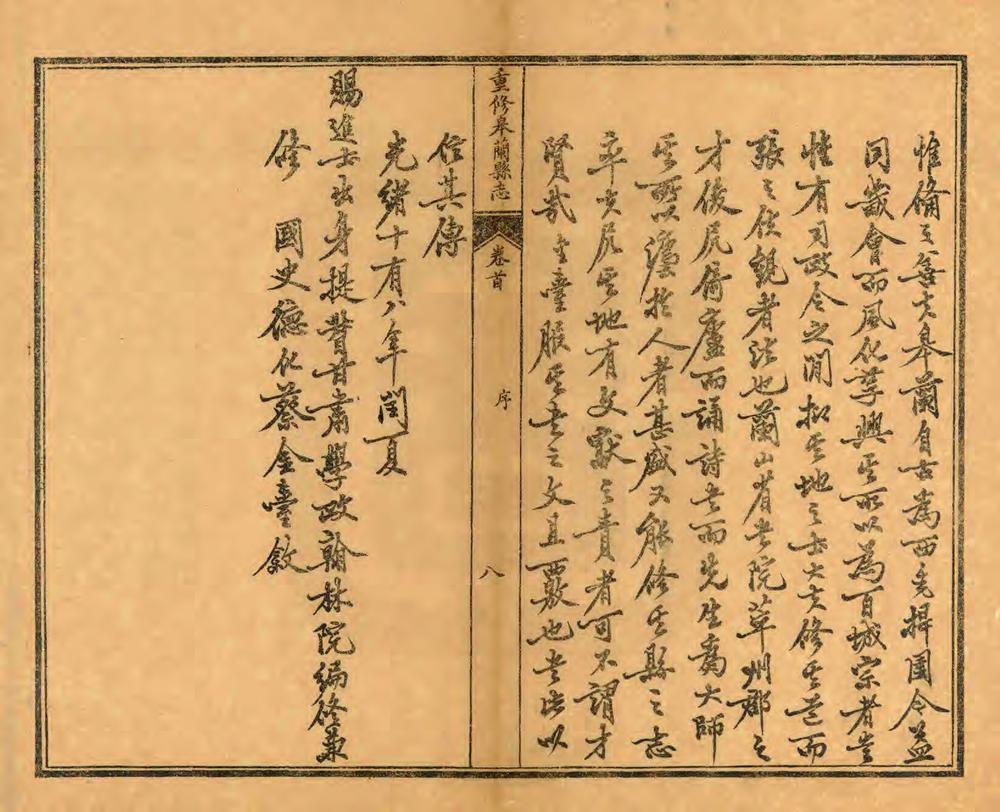 惟備善夫皋蘭自古為西捍圉今益
同畿會而風化萃興其所以為百城宗者豈
惟有司政令之閒抑其地之士大夫修其道而
張之觀者法也蘭山書院萃州郡之
才俊尻廬而誦詩書而先生為大師
其所以澤於人者甚盛又能修其縣之志
卒尻其地有文獻之責者可不謂才
賢哉金臺服其書之文且覈也書此以
重修皋蘭縣志 卷首 序 八
信其傳
光緒十有八年閏夏
賜進士出身提督甘肅學政翰林院編修兼
修 國史德化蔡金臺敘